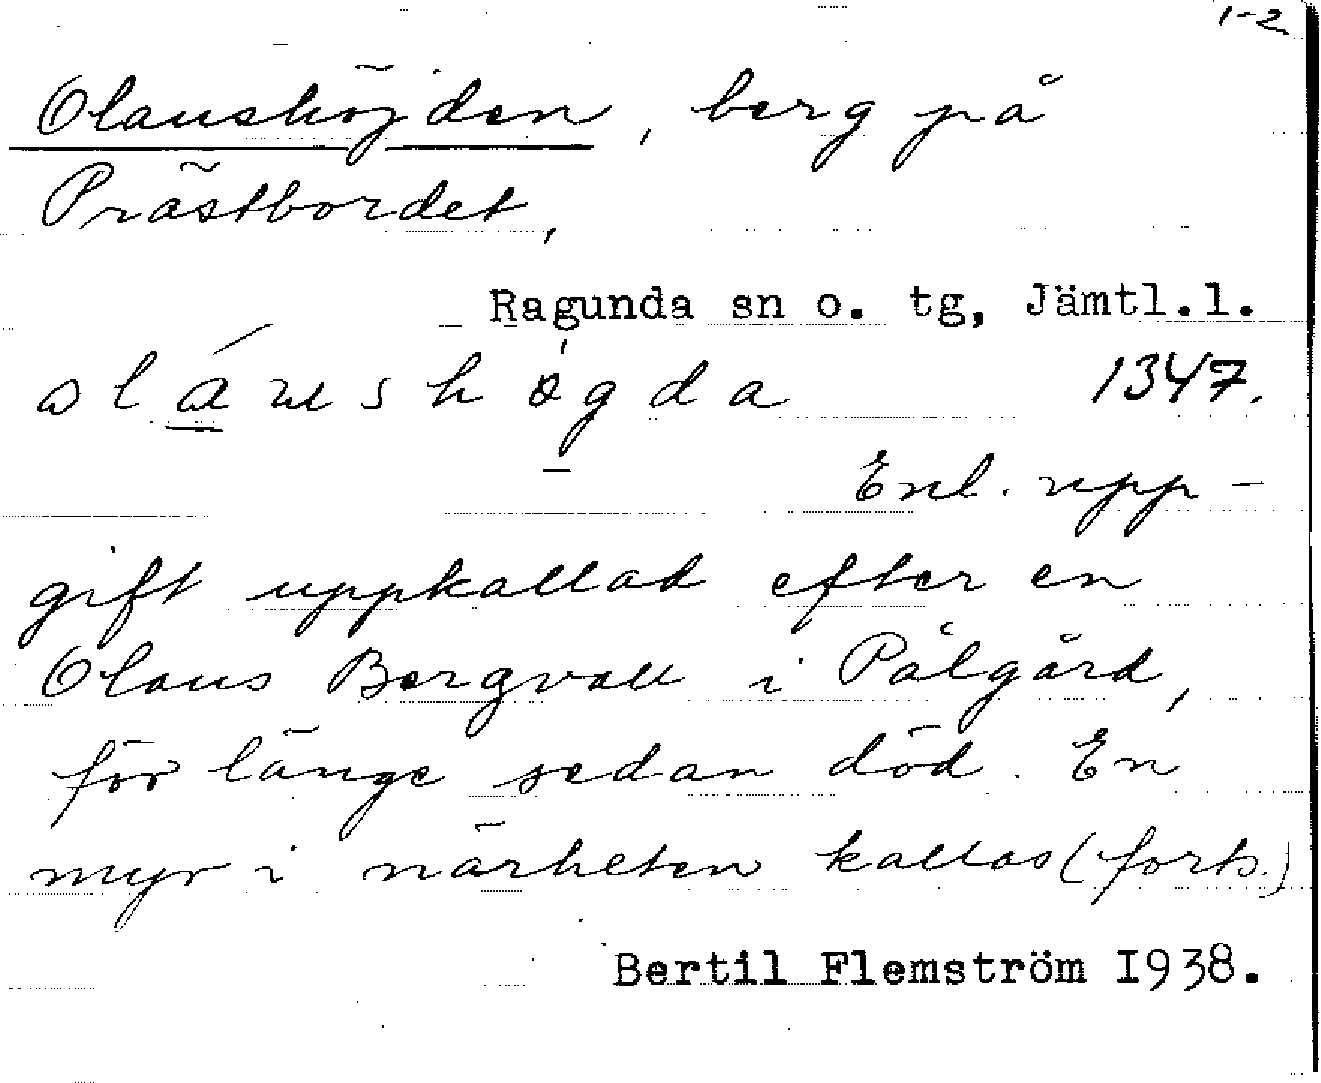 1-2
Olaushöjden, berg på
Prästbordet,
Ragunda sn o. tg, Jämtl.l.
1347.
Enl. upp-
gift uppkallad efter en
Olaus Bergvall i Pålgård,
för länge sedan död. En
myr i närheten kallas (forts.)
Bertil Flemström 1938.